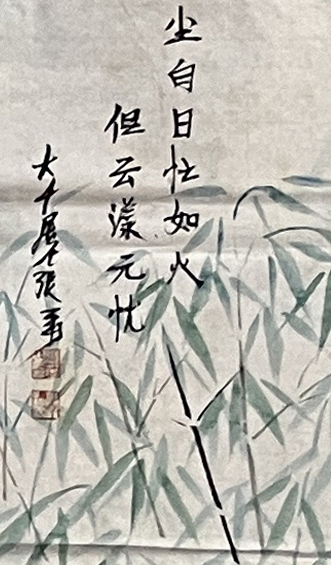 尘自日忙如火
但云漾元忧
大千居士張爰